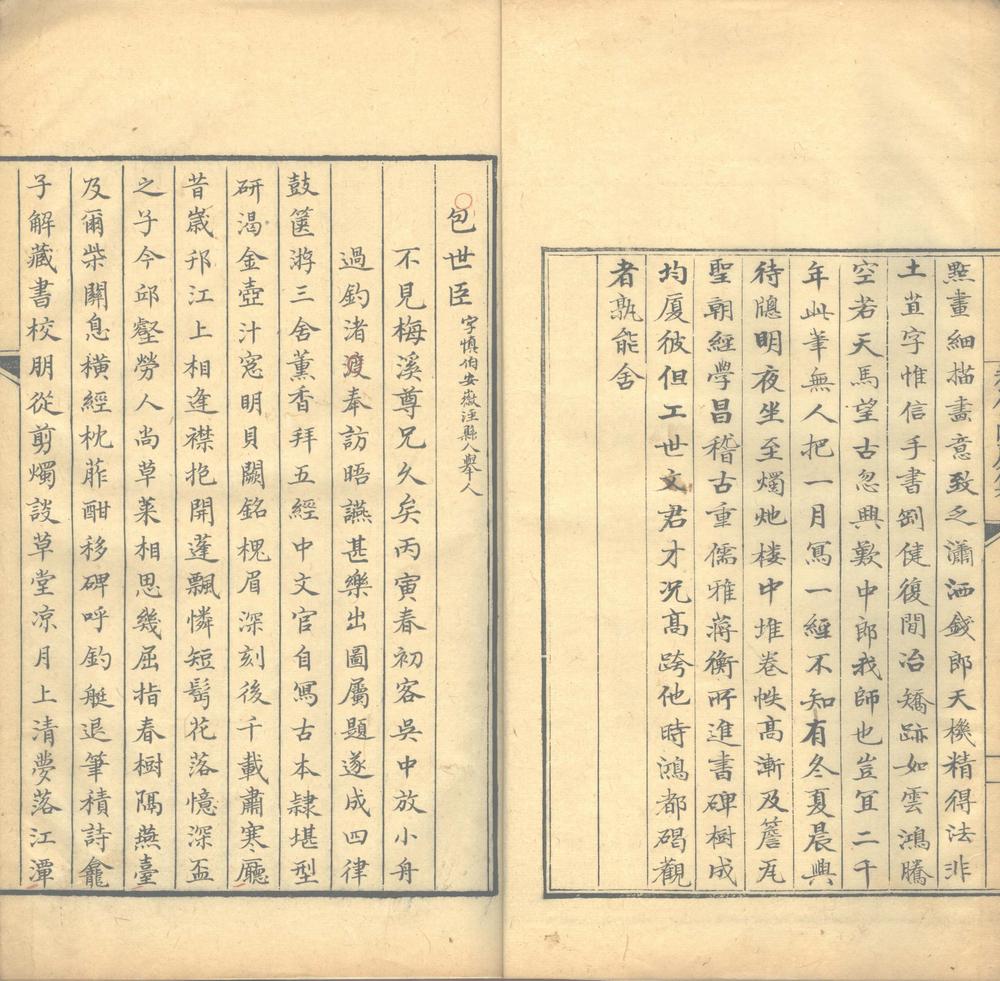 點畫細描畫意致乏瀟洒錢郎天機精得法非
土苴字惟信手書劉健復閒冶矯跡如雲鴻騰
空若天馬望古忽興歎中郎我師也豈宜二千
年此筆無人把一月寫一經不知有冬夏晨興
待牕明夜坐至燭灺楼中堆卷帙高漸及簷瓦
聖朝經學昌稽古重儒雅蔣衡所進書碑樹成
均厦彼但工世文君才况高跨他時鴻都碣觀
者孰能舍
包世臣 字慎伯安徽涇縣人舉人
不見梅溪尊兄久矣丙寅春初客吳中放小舟
過釣渚渡奉訪晤讌甚樂出圖屬題遂成四律
鼓篋遊三舍薰香拜五經中文官自寫古本隷堪型
研渴金壺汁窓明貝闕銘槐眉深刻後千載肅寒廳
昔歲邗江上相逢襟抱開蓬飄憐短髩花落憶深盃
之子今邱壑勞人尚草萊相思幾屈指春樹隔燕臺
及爾柴關息橫經枕葄酣移碑呼釣艇退筆積詩龕
子解藏書校朋從剪燭談草堂凉月上清夢落江潭